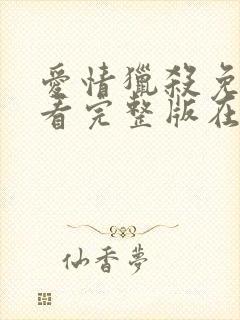 愛情獵殺免
看完整版在
仙香夢